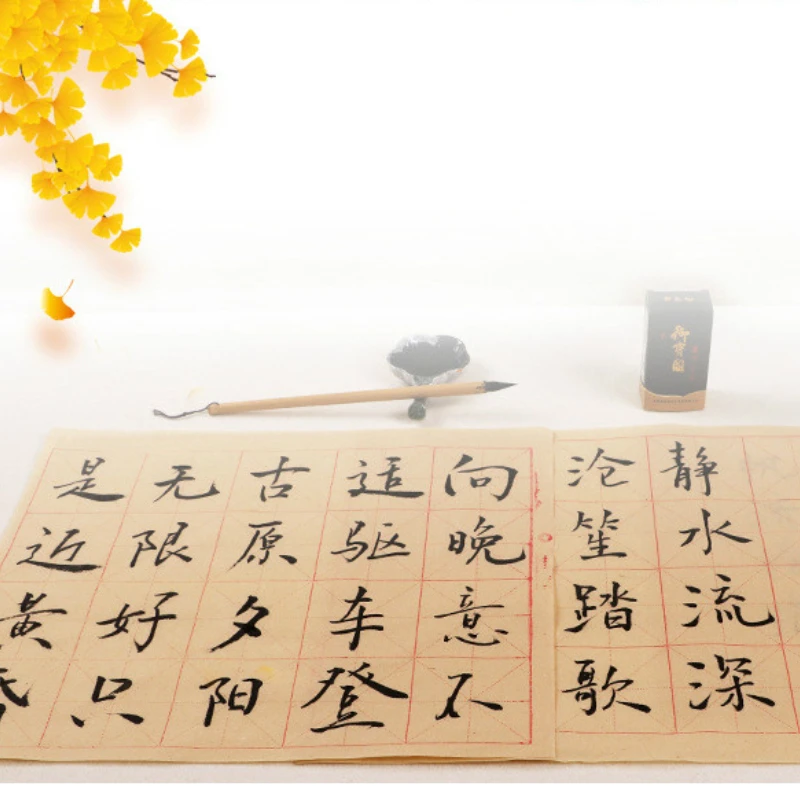 静水流深
沧笙踏歌
向晚意不
适驱车登
古原夕阳
无限好只
是近黄昏